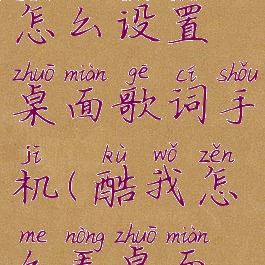 怎么设置
zhuō miàn gē cí shǒu
桌面歌词手
jī kù wǒ zěn
机(酷我怎
me nòng zhuō miàn
么弄桌面